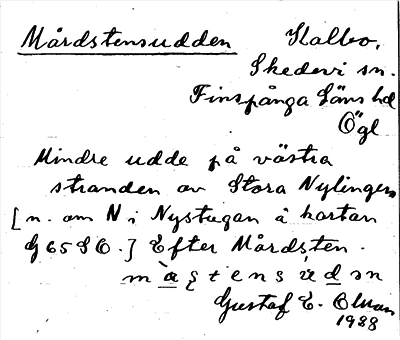 Mårdstensudden Kalbo,
Skedevi sn.
Finspånga Läns hd
Ögl
Mindre udde på västra
stranden av Stora Nylingen
[n. om N i Nystugan å kartan
G 65 SO.] Efter Mårdsten.
Gustaf E. Olsson
1938